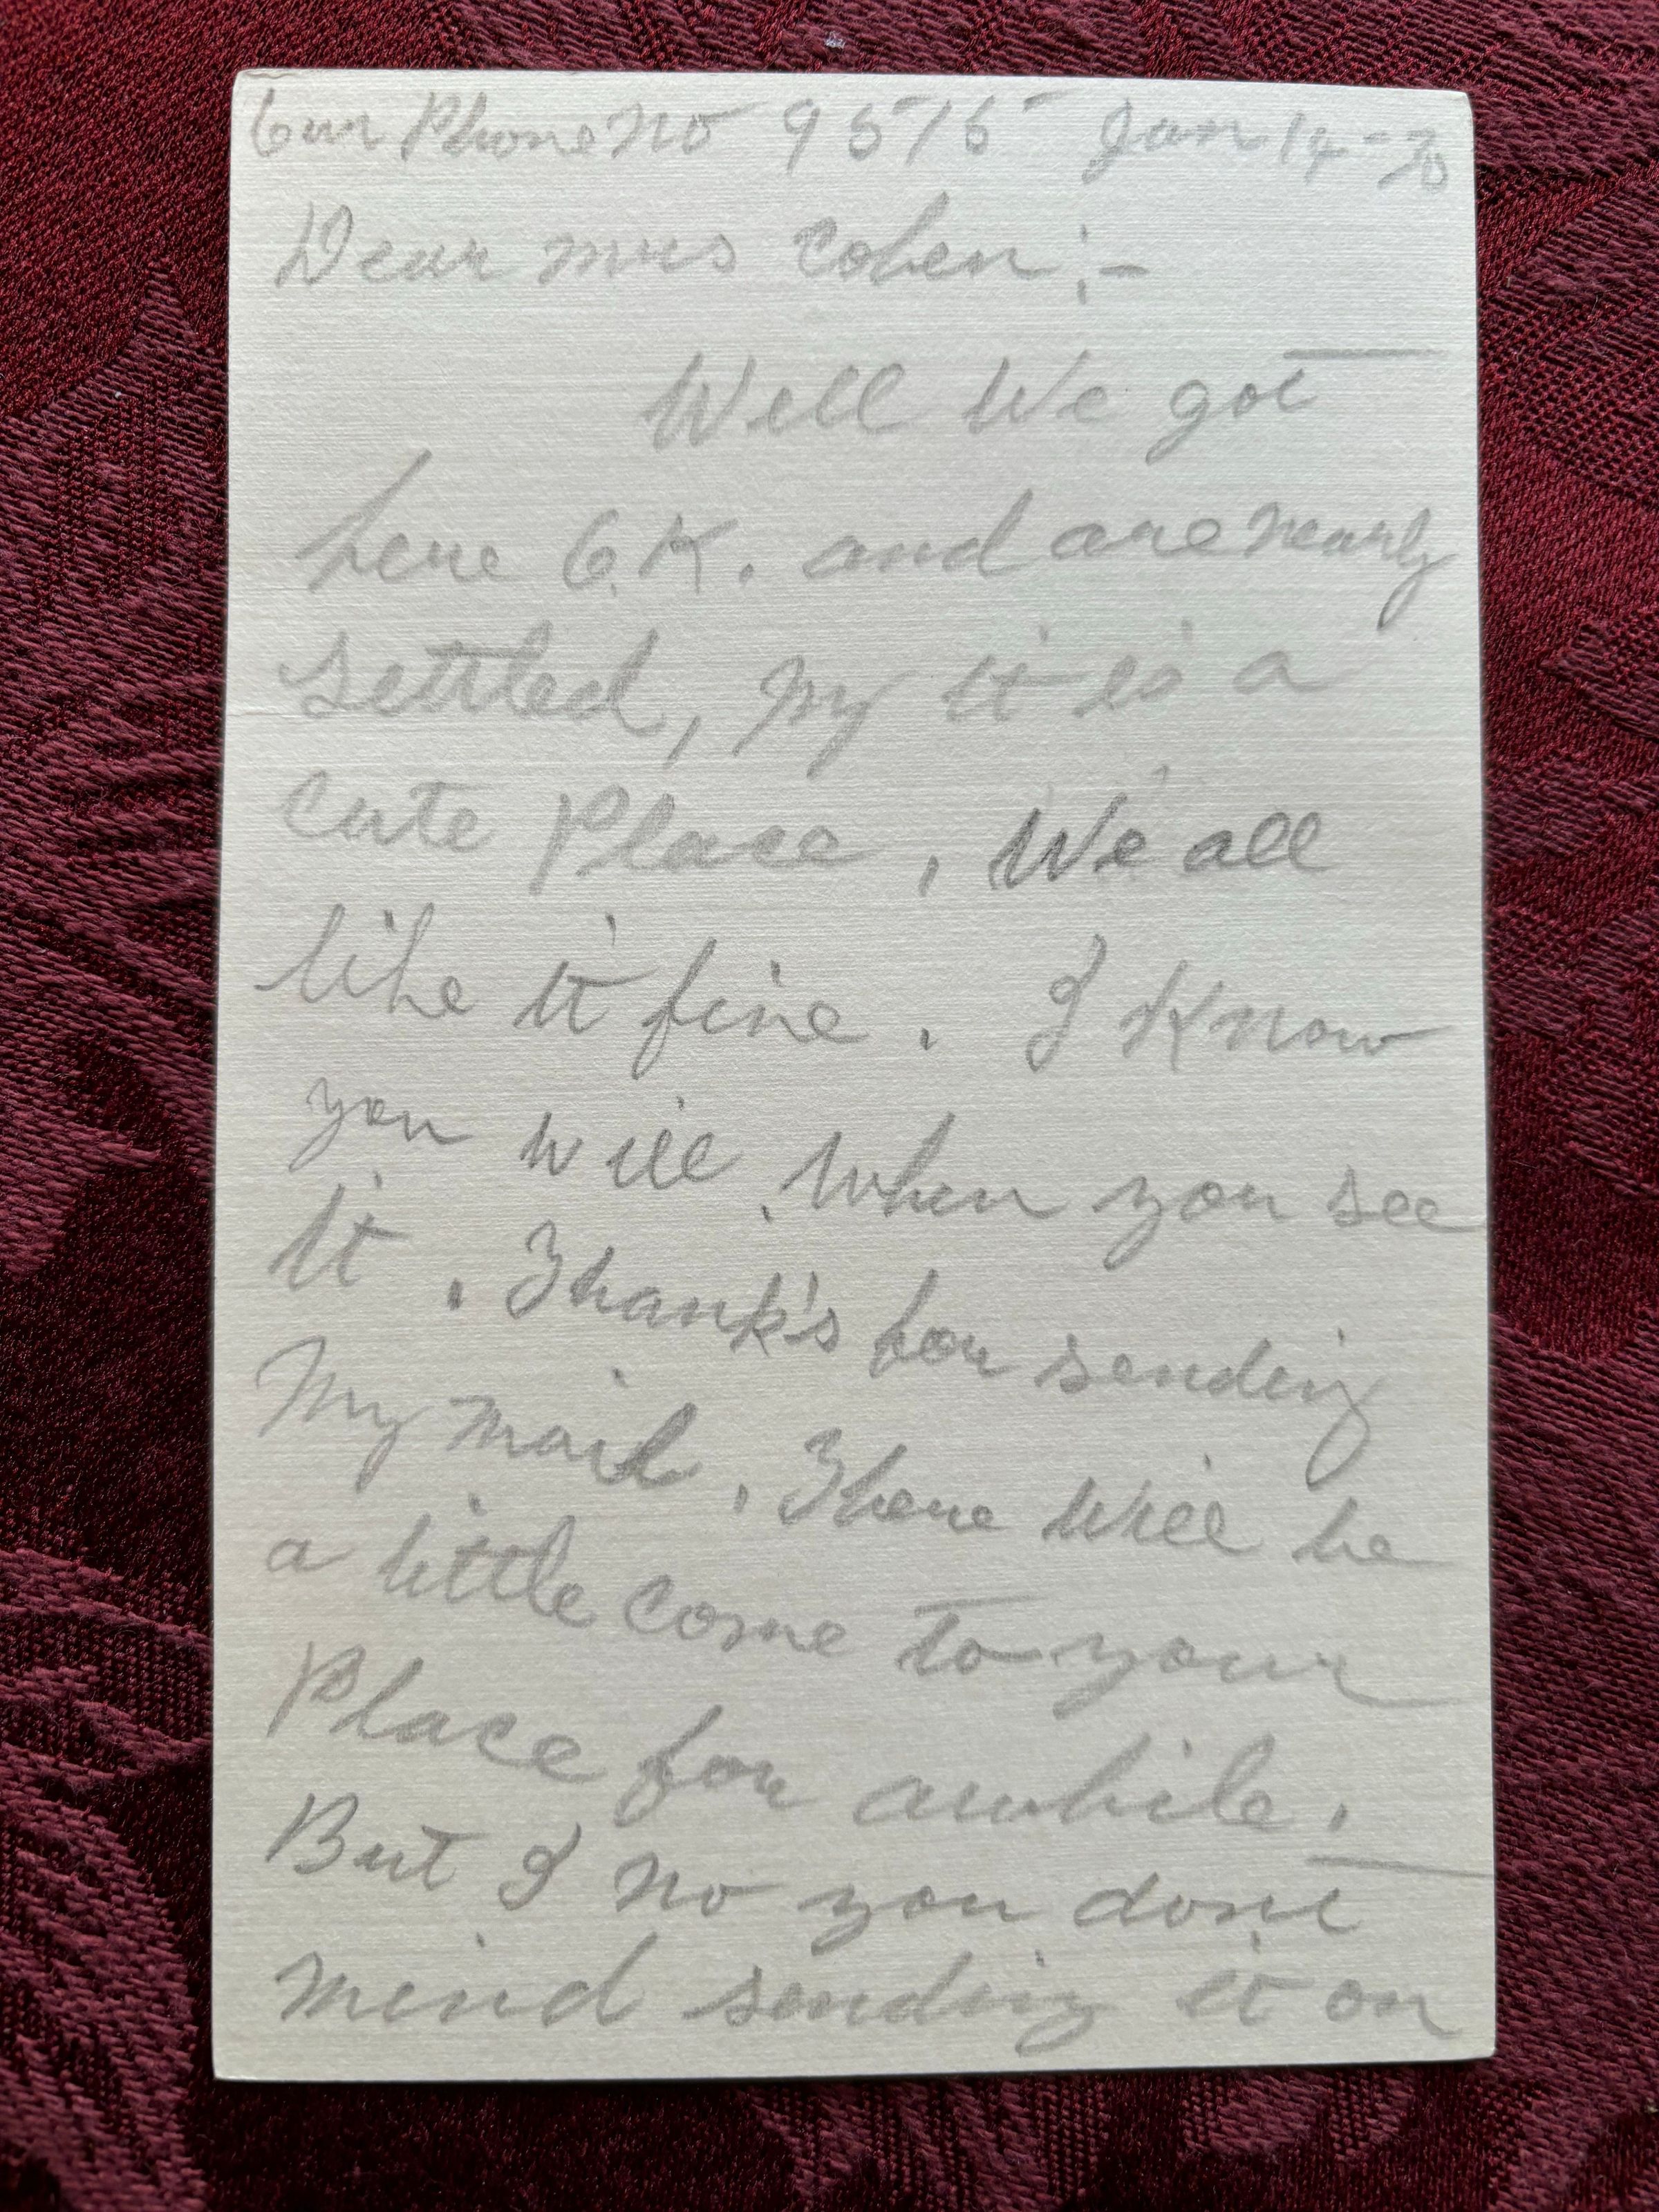 Our Phone No 9575 Jan 14-70
Dear Mrs Cohen;-
Well We got
here O.K. and are nearly
settled, My it is a
cute Place, We all
like it fine. I Know
you will, when you see
it. Thank's for sending
My mail, There will be
a little come to your
Place for awhile.
But I no you dont
mind sending it on